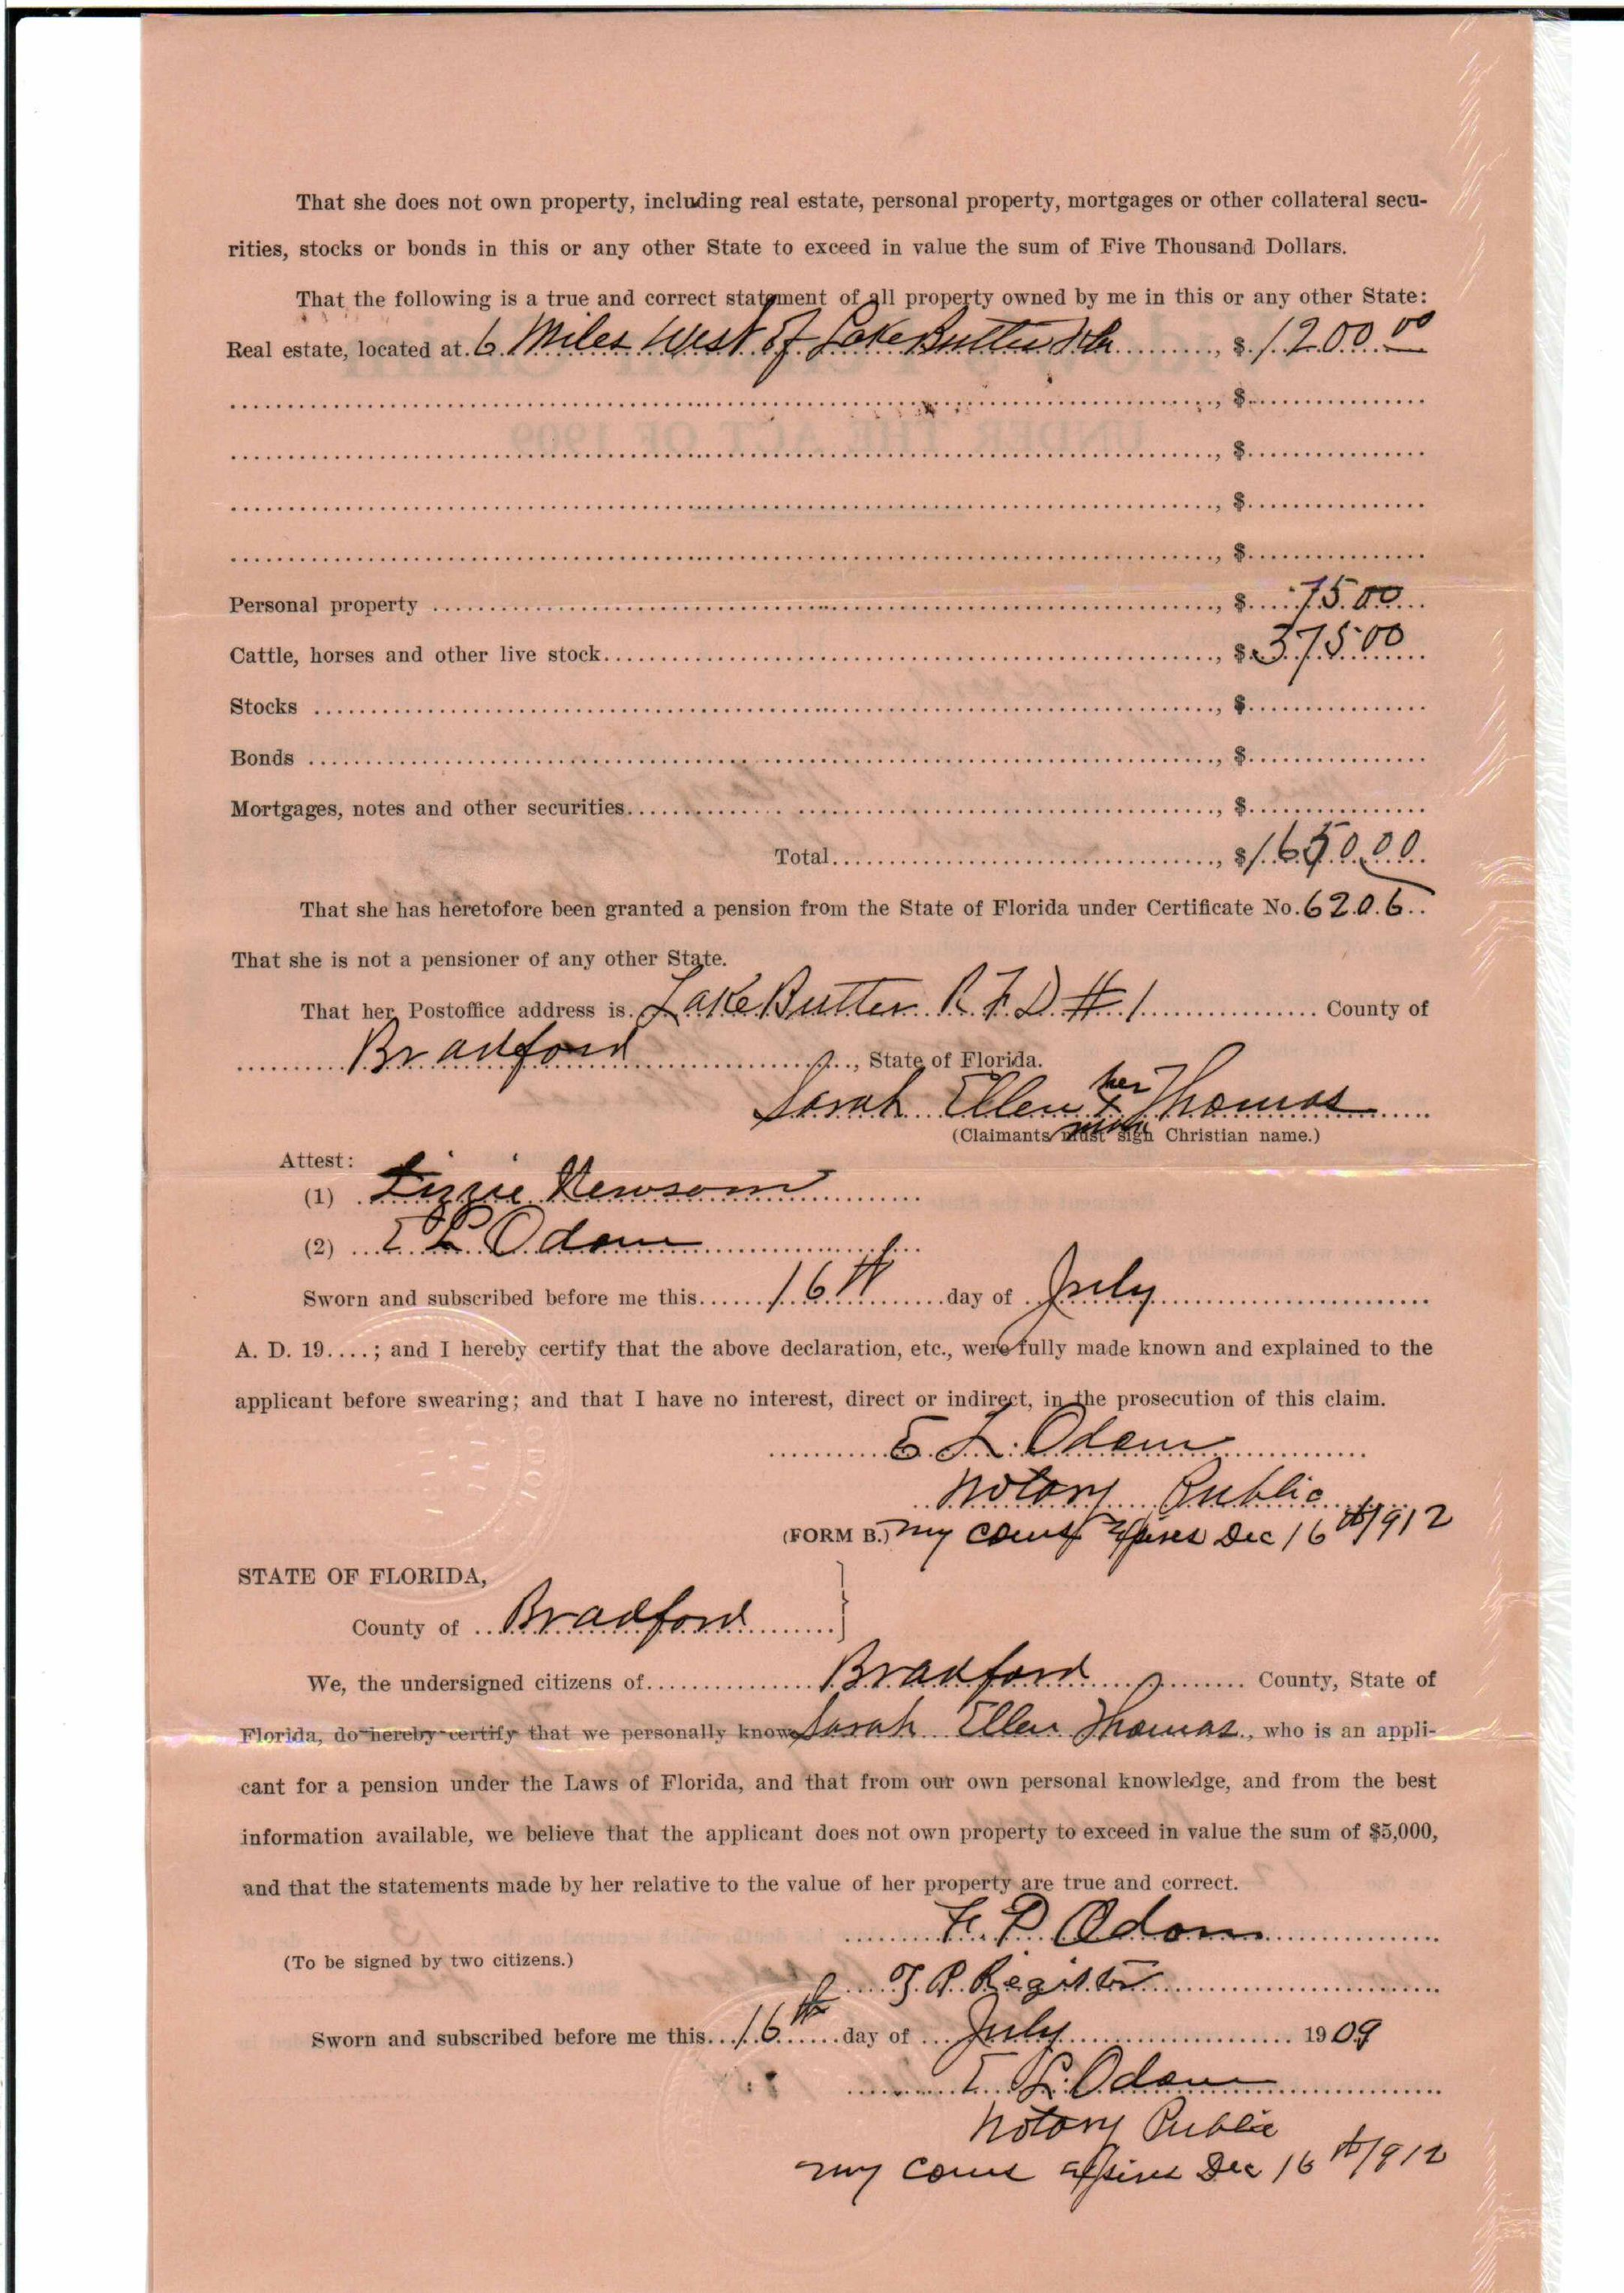 That she does not own property, including real estate, personal property, mortgages or other collateral secu-
rities, stocks or bonds in this or any other State to exceed in value the sum of Five Thousand Dollars.
That the following is a true and correct statement of all property owned by me in this or any other State:
Real estate, located at 6 Miles West of Lake Butler Fla, $ 1200 00
, $
, $
, $
, $
Personal property, $ 75 00
Cattle, horses and other live stock, $ 375 00
Stocks, $
Bonds, $
Mortgages, notes and other securities, $
Total, $ 1650.00
That she has heretofore been granted a pension from the State of Florida under Certificate No. 6206
That she is not a pensioner of any other State.
That her Postoffice address is Lake Butler R F D # 1 County of
Bradford, State of Florida.
her
Sarah Ellen x Thomas
mark
(Claimants must sign Christian name.)
Attest:
(1) Lizzie Newsom
(2) E L Odom
Sworn and subscribed before me this 16th day of July
A. D. 19....; and I hereby certify that the above declaration, etc., were fully made known and explained to the
applicant before swearing; and that I have no interest, direct or indirect, in the prosecution of this claim.
E. L. Odom
Notary Public
(FORM B.) my coms Expires Dec 16th 1912
STATE OF FLORIDA,
County of Bradford
We, the undersigned citizens of Bradford County, State of
Florida, do hereby certify that we personally know Sarah Ellen Thomas, who is an appli-
cant for a pension under the Laws of Florida, and that from our own personal knowledge, and from the best
information available, we believe that the applicant does not own property to exceed in value the sum of $5,000,
and that the statements made by her relative to the value of her property are true and correct.
F. P. Odom
(To be signed by two citizens.)
J. P. Register
Sworn and subscribed before me this 16th day of July 1909
E L. Odom
Notary Public
my coms expires Dec 16th 1912